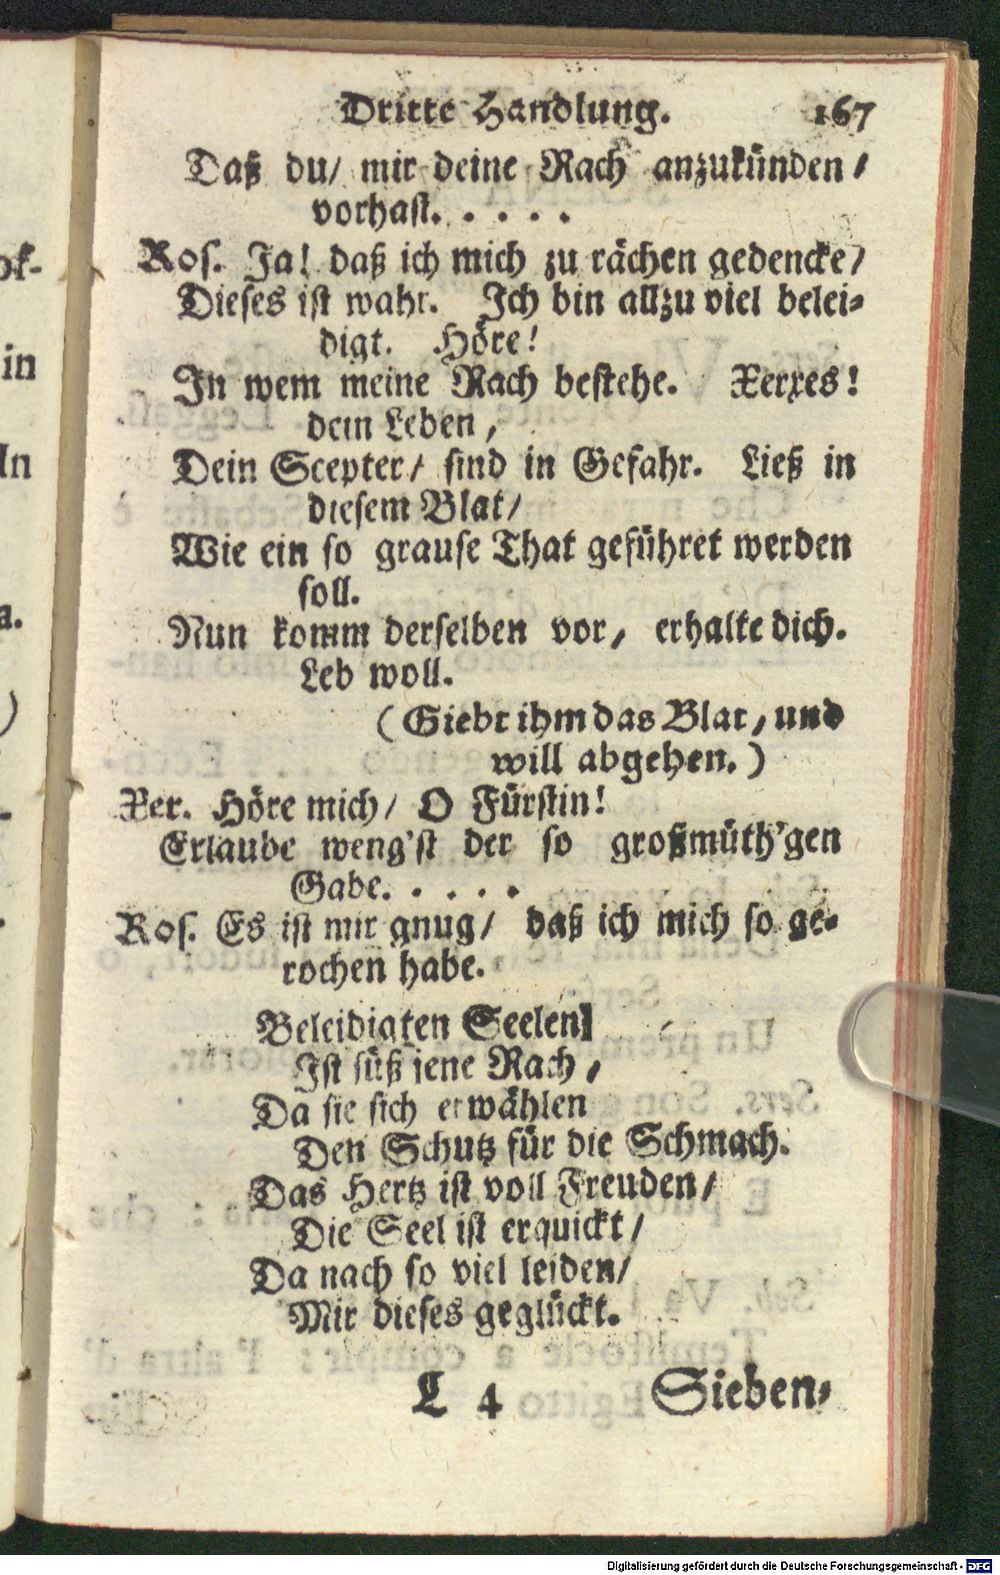 Dritte Handlung. 167
Daß du/ mir deine Rach anzukünden/
vorhast. . . . .
Ros. Ja! daß ich mich zu rächen gedencke/
Dieses ist wahr. Ich bin allzu viel belei-
digt. Höre!
In wem meine Rach bestehe. Xerxes!
dein Leben,
Dein Scepter/ sind in Gefahr. Ließ in
diesem Blat/
Wie ein so grause That geführet werden
soll.
Nun komm derselben vor, erhalte dich.
Leb woll.
(Giebt ihm das Blat, und
will abgehen.)
Xer. Höre mich/ O Fürstin!
Erlaube weng'st der so großmüth'gen
Gabe. . . . .
Ros. Es ist mir gnug/ daß ich mich so ge-
rochen habe.
Beleidigten Seelen
Ist süß jene Rach,
Da sie sich erwählen
Den Schutz für die Schmach.
Das Hertz ist voll Freuden/
Die Seel ist erquickt/
Da nach so viel leiden/
Mir dieses geglückt.
L 4 Sieben-
ok-
in
In
a.
)
Digitalisierung gefördert durch die Deutsche Forschungsgemeinschaft - DFG